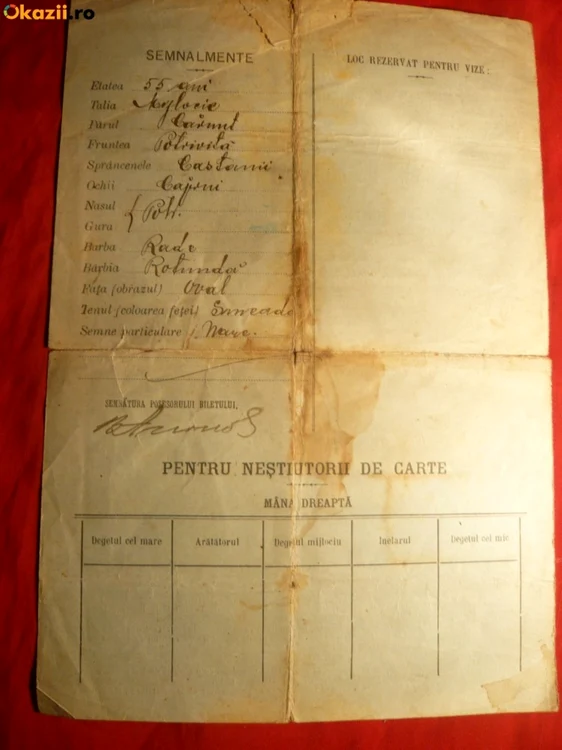 Okazii.ro
SEMNALMENTE
LOC REZERVAT PENTRU VIZE:
Etatea 55 ani
Talia Mylocie
Părul Cărunt
Fruntea Potrivită
Sprâncenele Castanii
Ochii Căprui
Nasul
Gura } Potr.
Barba Rade
Bărbia Rotundă
Fața (obrazul) Oval
Tenul (coloarea feței) Smead
Semne particulare Nare.
SEMNĂTURA POSESORULUI BILETULUI,
PENTRU NEȘTIUTORII DE CARTE
MÂNA DREAPTĂ
Degetul cel mare Arătătorul Degetul mijlociu Inelarul Degetul cel mic